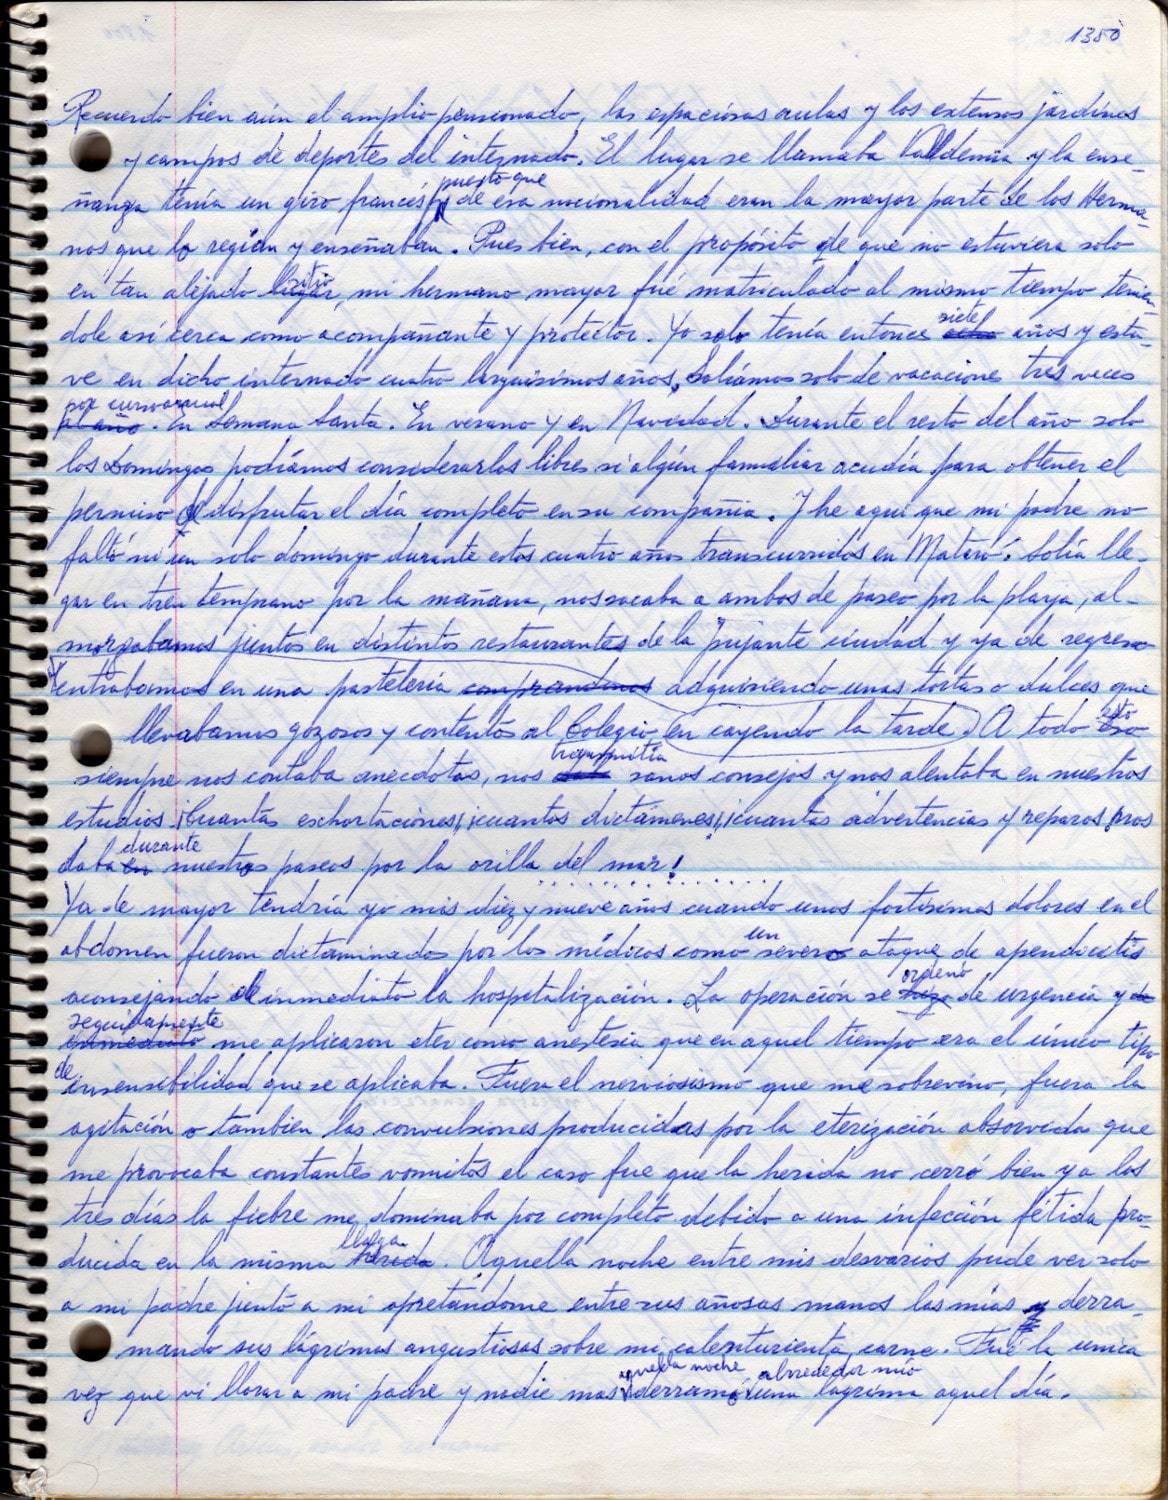 1380
Recuerdo bien aún el amplio pensionado, las espaciosas aulas y los extensos jardines
y campos de deportes del internado. El lugar se llamaba Valldemía y la ense-
ñanza tenía un giro francés, puesto que de esa nacionalidad eran la mayor parte de los Herma-
nos que lo regían y enseñaban. Pues bien, con el propósito de que no estuviera solo
en tan alejado lugar sitio, mi hermano mayor fué matriculado al mismo tiempo tenien-
dole así cerca como acompañante y protector. Yo solo tenía entonces siete años y estu-
ve en dicho internado cuatro larguisimos años. Saliamos solo de vacaciones tres veces
al año por curso anual. En Semana Santa. En verano y en Navidad. Durante el resto del año solo
los Domingos podíamos considerarlos libres si algún familiar acudía para obtener el
permiso de disfrutar el día completo en su compañia. Y he aquí que mi padre no
faltó ni un solo domingo durante estos cuatro años transcurridos en Mataró. Solía lle-
gar en tren temprano por la mañana, nos sacaba a ambos de paseo por la playa, al-
morzabamos juntos en distintos restaurantes de la pujante ciudad y ya de regreso
entrabamos en una pasteleria comprandonos adquiriendo unas tortas o dulces que
llevabamos gozosos y contentos al Colegio en cayendo la tarde. A todo eso esto
siempre nos contaba anecdotas, nos transmitía sanos consejos y nos alentaba en nuestros
estudios. ¡Cuantas exhortaciones!, ¡cuantos dictámenes!, ¡cuantas advertencias y reparos nos
daba en durante nuestros paseos por la orilla del mar!
Ya de mayor tendría yo mis diez y nueve años cuando unos fortisimos dolores en el
abdomen fueron dictaminados por los médicos como un severo ataque de apendicitis
aconsejando de inmediato la hospitalización. La operación se hizo ordenó de urgencia y de
inmediato seguidamente me aplicaron eter como anestesia que en aquel tiempo era el único tipo
de insensibilidad que se aplicaba. Fuera el nerviosismo que me sobrevino, fuera la
agitación o tambien las convulsiones producidas por la eterización absorvida que
me provocaba constantes vomitos el caso fue que la herida no cerró bien y a los
tres días la fiebre me dominaba por completo debido a una infección fétida pro-
ducida en la misma herida llaga. Aquella noche entre mis desvarios pude ver solo
a mi padre junto a mi apretándome entre sus añosas manos las mías y derra-
mando sus lágrimas angustiosas sobre mi calenturienta carne. Fué la unica
vez que vi llorar a mi padre y nadie mas aquella noche derramó alrededor mio una lagrima aquel día.